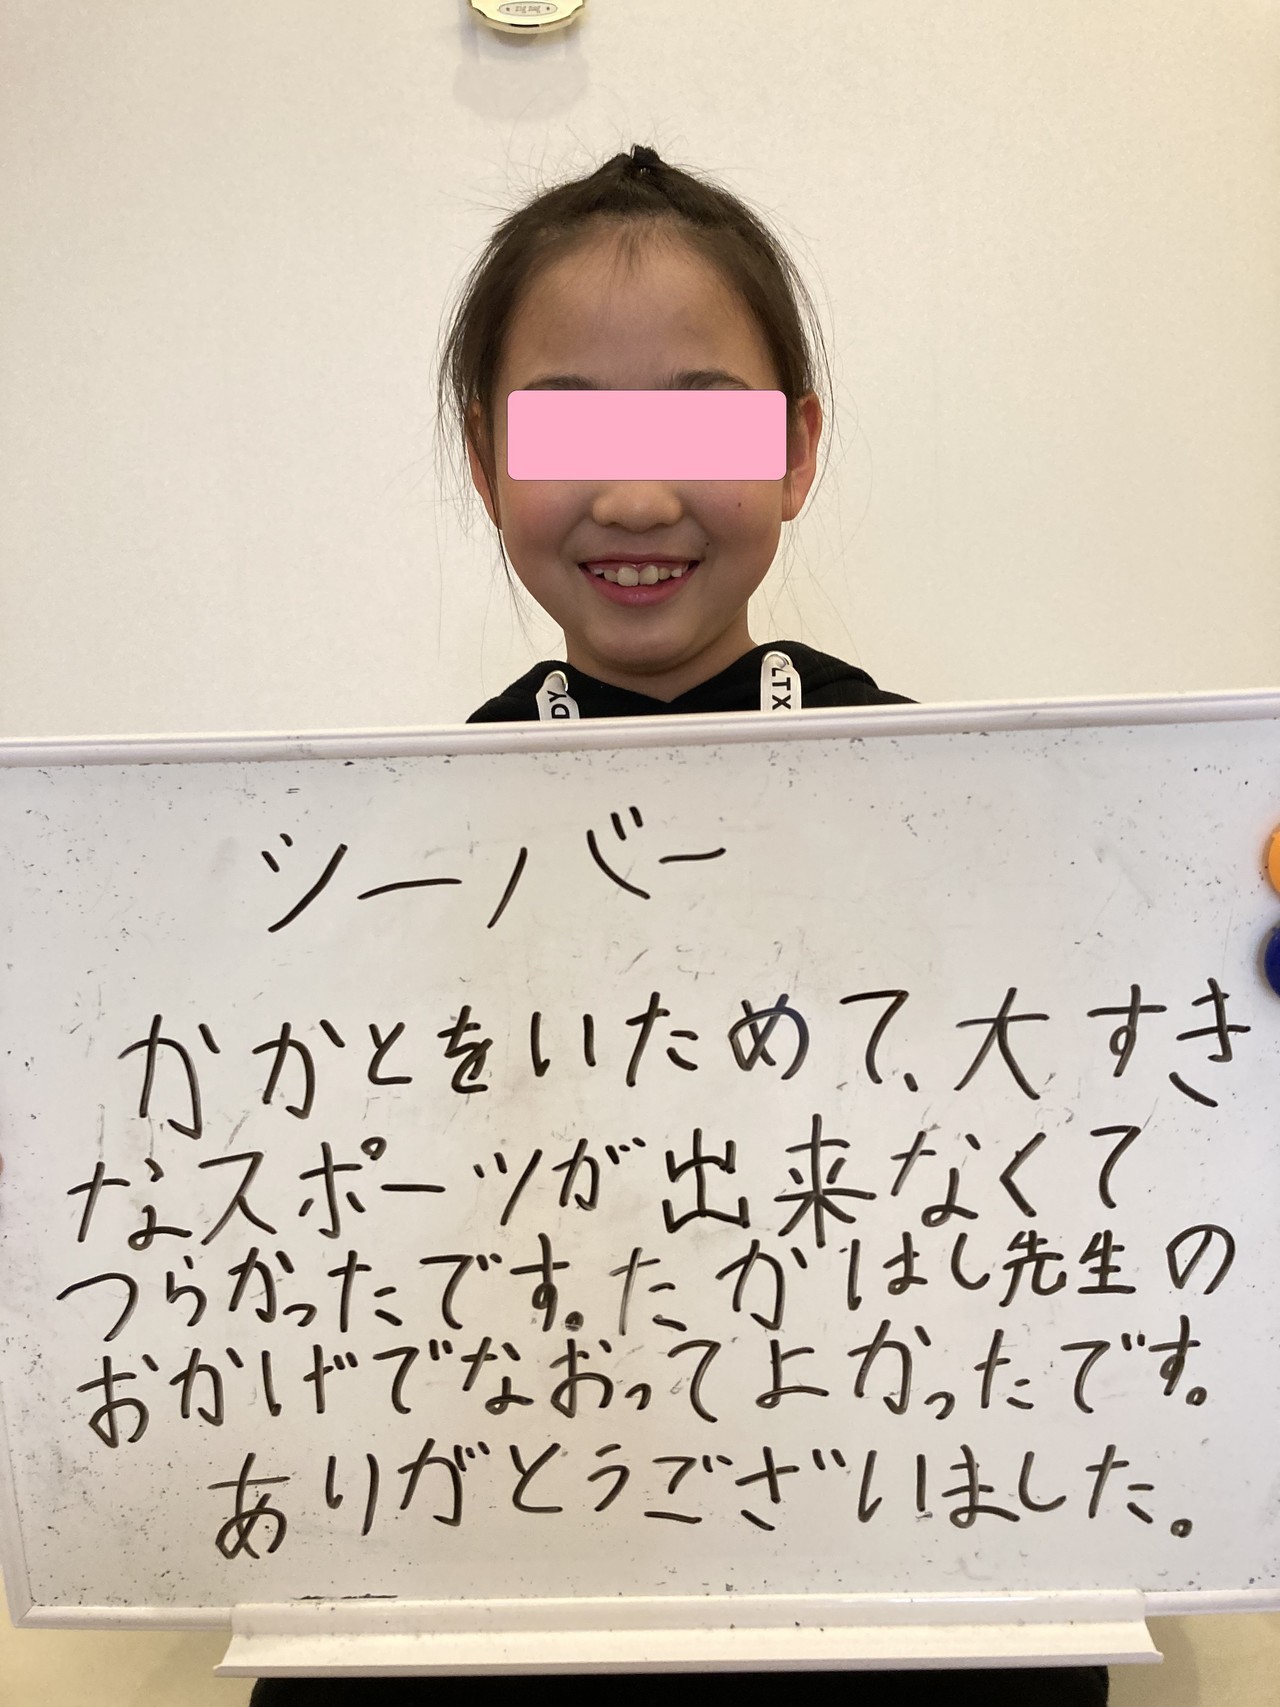 DY
LTX
シーバー
かかとをいためて、大すき
なスポーツが出来なくて
つらかったです。たがはし先生の
おかげでなおってよかったです。
ありがとうございました。